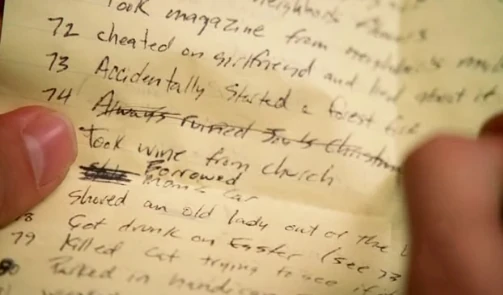 neighbors flowers
Took magazine from neighbors
72 cheated on girlfriend and lied about it
73 Accidentally started a forest fire
74 Always ruined Joy's Christmas
Took wine from church
Borrowed
Mom's Car
shoved an old lady out of the
78 Got drunk on Easter (see 73
79 Killed cat trying to see if
80 Parked in handicap